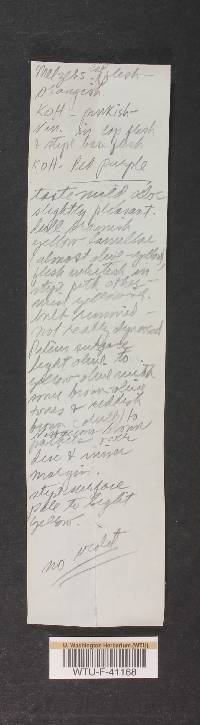 Melzers flesh -
orangish
KOH - pinkish-
Vin. in cap flesh
& stipe base flesh
KOH - Red purple
taste mild odor
slightly pleasant.
dull
yellow lamellae
almost olive-yellow,
flesh whitish in
stipe pith other-
wise yellowish.
bulb rimmed -
not really depressed
Pileus surface
light olive to
yellow olive with
some brown olive
tones & reddish
brown (dull) to
brown
over
disc & inner
margin.
stipe surface
pale to light
yellow.
no violet
U. Washington Herbarium (WTU)
WTU-F-41168